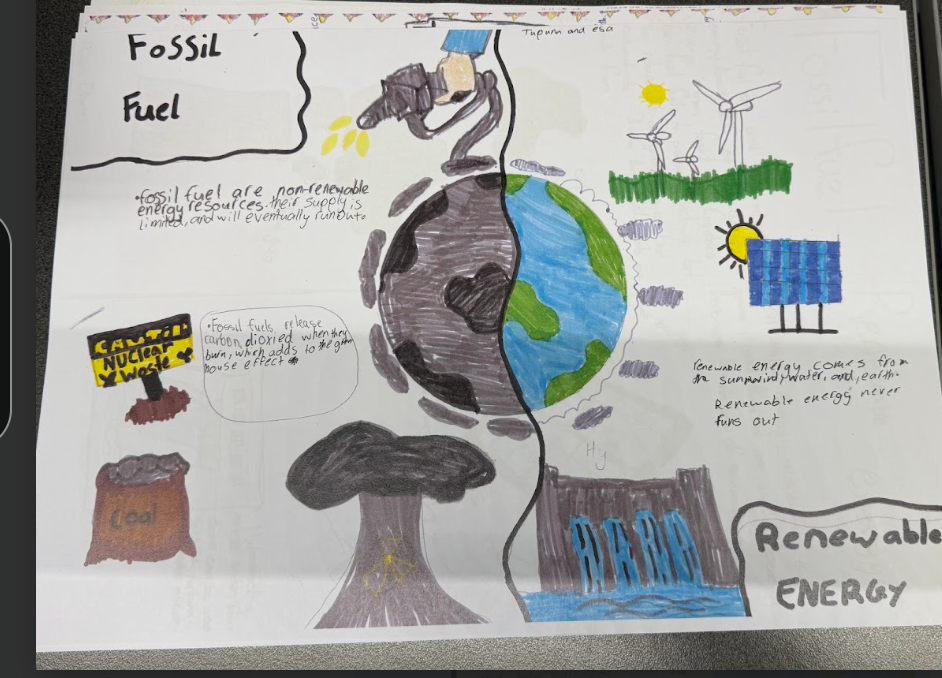 Fossil
Fuel
Tupum and esa
• fossil fuel are non-renewable
energy resources. their supply is
limited, and will eventually runout.
CAUTION
NUCLEAR
waste
• Fossil fuels release
carbon dioxied when they
burn, which adds to the
house effect
Coal
renewable energy comes from
the sun, wind, water, and, earth.
Renewable energy never
runs out
Hy
Renewable
ENERGY